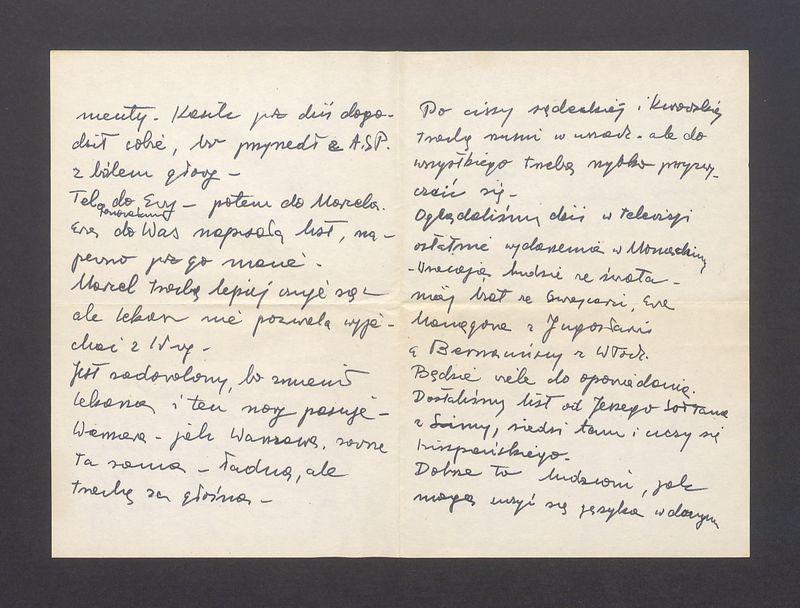 menty - Kasik już dziś dopo-
dził sobie, bo przyszedł z A.S.P.
z bólem głowy -
Tel. do Ewy - potem do Marcela.
Ewa do Was napisała list, na-
pewno już go macie.
Marcel trochę lepiej czuje się -
ale lekarz nie pozwala wyje-
chać z W-wy -
Jest zadowolony, bo zmienił
lekarza i ten nowy pasuje -
Warszawa - jak Warszawa, zawsze
ta sama - ładna, ale
trochę za głośna -
Po ciszy sądeckiej i
trochę szumi w uszach - ale do
wszystkiego trzeba szybko przyzwy-
czaić się -
Oglądaliśmy dziś w telewizji
ostatnie wydarzenia w Monachium
- Wracają ludzie ze świata -
mój brat ze Szwajcarii, Ewa
z Jugosławii
a z Włoch.
Będzie wiele do opowiadania.
Dostaliśmy list od Jerzego Sołtana
z Limy, siedzi tam i uczy się
hiszpańskiego.
Dobrze to ludziom, jak
mogą uczyć się języka w danym